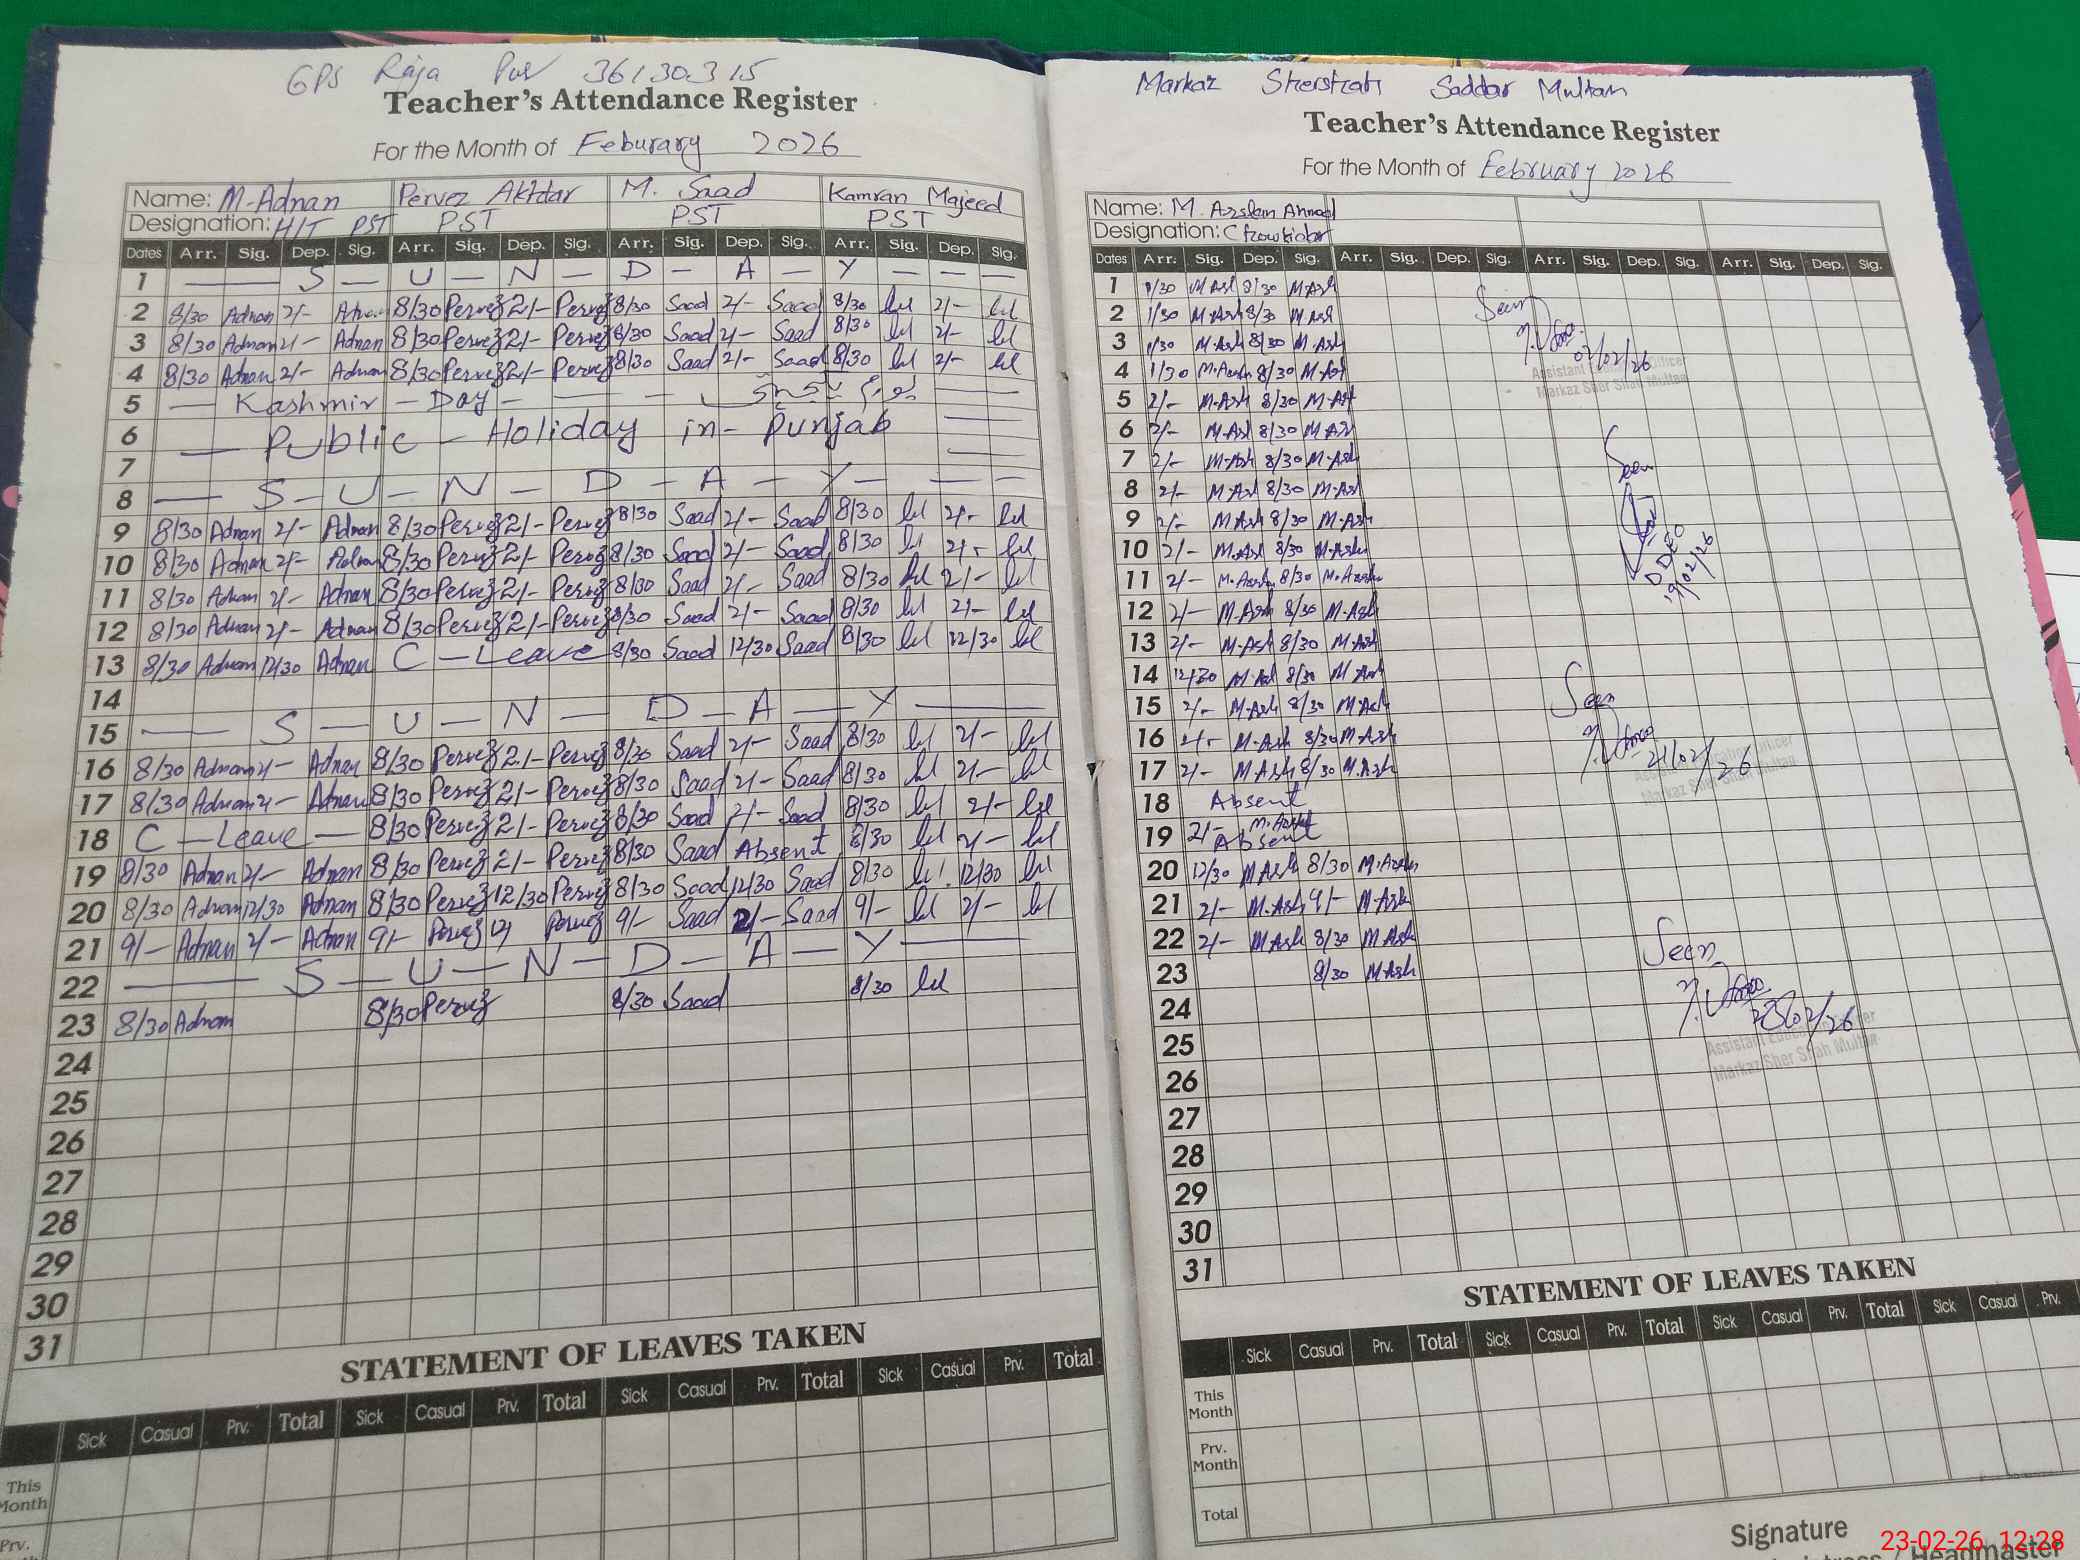 GPS Raja Pur 36130315
Teacher's Attendance Register
For the Month of Feburary 2026
Name: M-Adnan Pervez Akhtar M. Saad Kamran Majeed
Designation: H/T PST PST PST PST
Dates Arr. Sig. Dep. Sig. Arr. Sig. Dep. Sig. Arr. Sig. Dep. Sig. Arr. Sig. Dep. Sig.
1 — S — U — N — D — A — Y — — —
2 8/30 Adnan 2/- Adnan 8/30 Pervez 2/- Pervez 8/30 Saad 2/- Saad 8/30 2/-
3 8/30 Adnan 2/- Adnan 8/30 Pervez 2/- Pervez 8/30 Saad 2/- Saad 8/30 2/-
4 8/30 Adnan 2/- Adnan 8/30 Pervez 2/- Pervez 8/30 Saad 2/- Saad 8/30 2/-
5 — Kashmir — Day —
6 — Public — Holiday in - Punjab
7
8 — S — U — N — D — A — Y — — —
9 8/30 Adnan 2/- Adnan 8/30 Pervez 2/- Pervez 8/30 Saad 2/- Saad 8/30 2/-
10 8/30 Adnan 2/- Adnan 8/30 Pervez 2/- Pervez 8/30 Saad 2/- Saad 8/30 2/-
11 8/30 Adnan 2/- Adnan 8/30 Pervez 2/- Pervez 8/30 Saad 2/- Saad 8/30 2/-
12 8/30 Adnan 2/- Adnan 8/30 Pervez 2/- Pervez 8/30 Saad 2/- Saad 8/30 2/-
13 8/30 Adnan 12/30 Adnan C — Leave 8/30 Saad 12/30 Saad 8/30 12/30
14
15 — S — U — N — D — A — Y —
16 8/30 Adnan 2/- Adnan 8/30 Pervez 2/- Pervez 8/30 Saad 2/- Saad 8/30 2/-
17 8/30 Adnan 2/- Adnan 8/30 Pervez 2/- Pervez 8/30 Saad 2/- Saad 8/30 2/-
18 C — Leave — 8/30 Pervez 2/- Pervez 8/30 Saad 2/- Saad 8/30 2/-
19 8/30 Adnan 2/- Adnan 8/30 Pervez 2/- Pervez 8/30 Saad Absent 8/30 2/-
20 8/30 Adnan 12/30 Adnan 8/30 Pervez 12/30 Pervez 8/30 Saad 12/30 Saad 8/30 12/30
21 9/- Adnan 2/- Adnan 9/- Pervez Pervez 9/- Saad 2/- Saad 9/- 2/-
22 — S — U — N — D — A — Y —
23 8/30 Adnan 8/30 Pervez 8/30 Saad 8/30
24
25
26
27
28
29
30
31
STATEMENT OF LEAVES TAKEN
Sick Casual Prv. Total Sick Casual Prv. Total Sick Casual Prv. Total Sick Casual Prv. Total
This Month
Prv.
Markaz Shershah Saddar Multan
Teacher's Attendance Register
For the Month of February 2026
Name: M. Arslan Ahmad
Designation: Chowkidar
Dates Arr. Sig. Dep. Sig. Arr. Sig. Dep. Sig. Arr. Sig. Dep. Sig. Arr. Sig. Dep. Sig.
1 1/30 M.Ash 8/30 M.Ash
2 1/30 M.Ash 8/30 M.Ash Seen
3 1/30 M.Ash 8/30 M.Ash 02/02/26
4 1/30 M.Ash 8/30 M.Ash Assistant Education Officer
Markaz Sher Shah Multan
5 2/- M.Ash 8/30 M.Ash
6 2/- M.Ash 8/30 M.Ash
7 2/- M.Ash 8/30 M.Ash Seen
8 2/- M.Ash 8/30 M.Ash
9 2/- M.Ash 8/30 M.Ash
10 2/- M.Ash 8/30 M.Ash DDEO
11 2/- M.Arslan 8/30 M.Arslan 19/02/26
12 2/- M.Ash 8/30 M.Ash
13 2/- M.Ash 8/30 M.Ash
14 12/30 M.Ash 8/30 M.Ash Seen
15 2/- M.Ash 8/30 M.Ash
16 2/- M.Ash 8/30 M.Ash 21/02/26
17 2/- M.Ash 8/30 M.Ash Assistant Education Officer
Markaz Sher Shah Multan
18 Absent
19 2/- Absent
20 12/30 M.Ash 8/30 M.Arslan
21 2/- M.Ash 9/- M.Ash
22 2/- M.Ash 8/30 M.Ash Seen
23 8/30 M.Ash
24 23/02/26
25 Assistant Education Officer
Markaz Sher Shah Multan
26
27
28
29
30
31
STATEMENT OF LEAVES TAKEN
Sick Casual Prv. Total Sick Casual Prv. Total Sick Casual Prv. Total Sick Casual Prv.
This Month
Prv. Month
Total
Signature
Headmaster
23-02-26 12:28